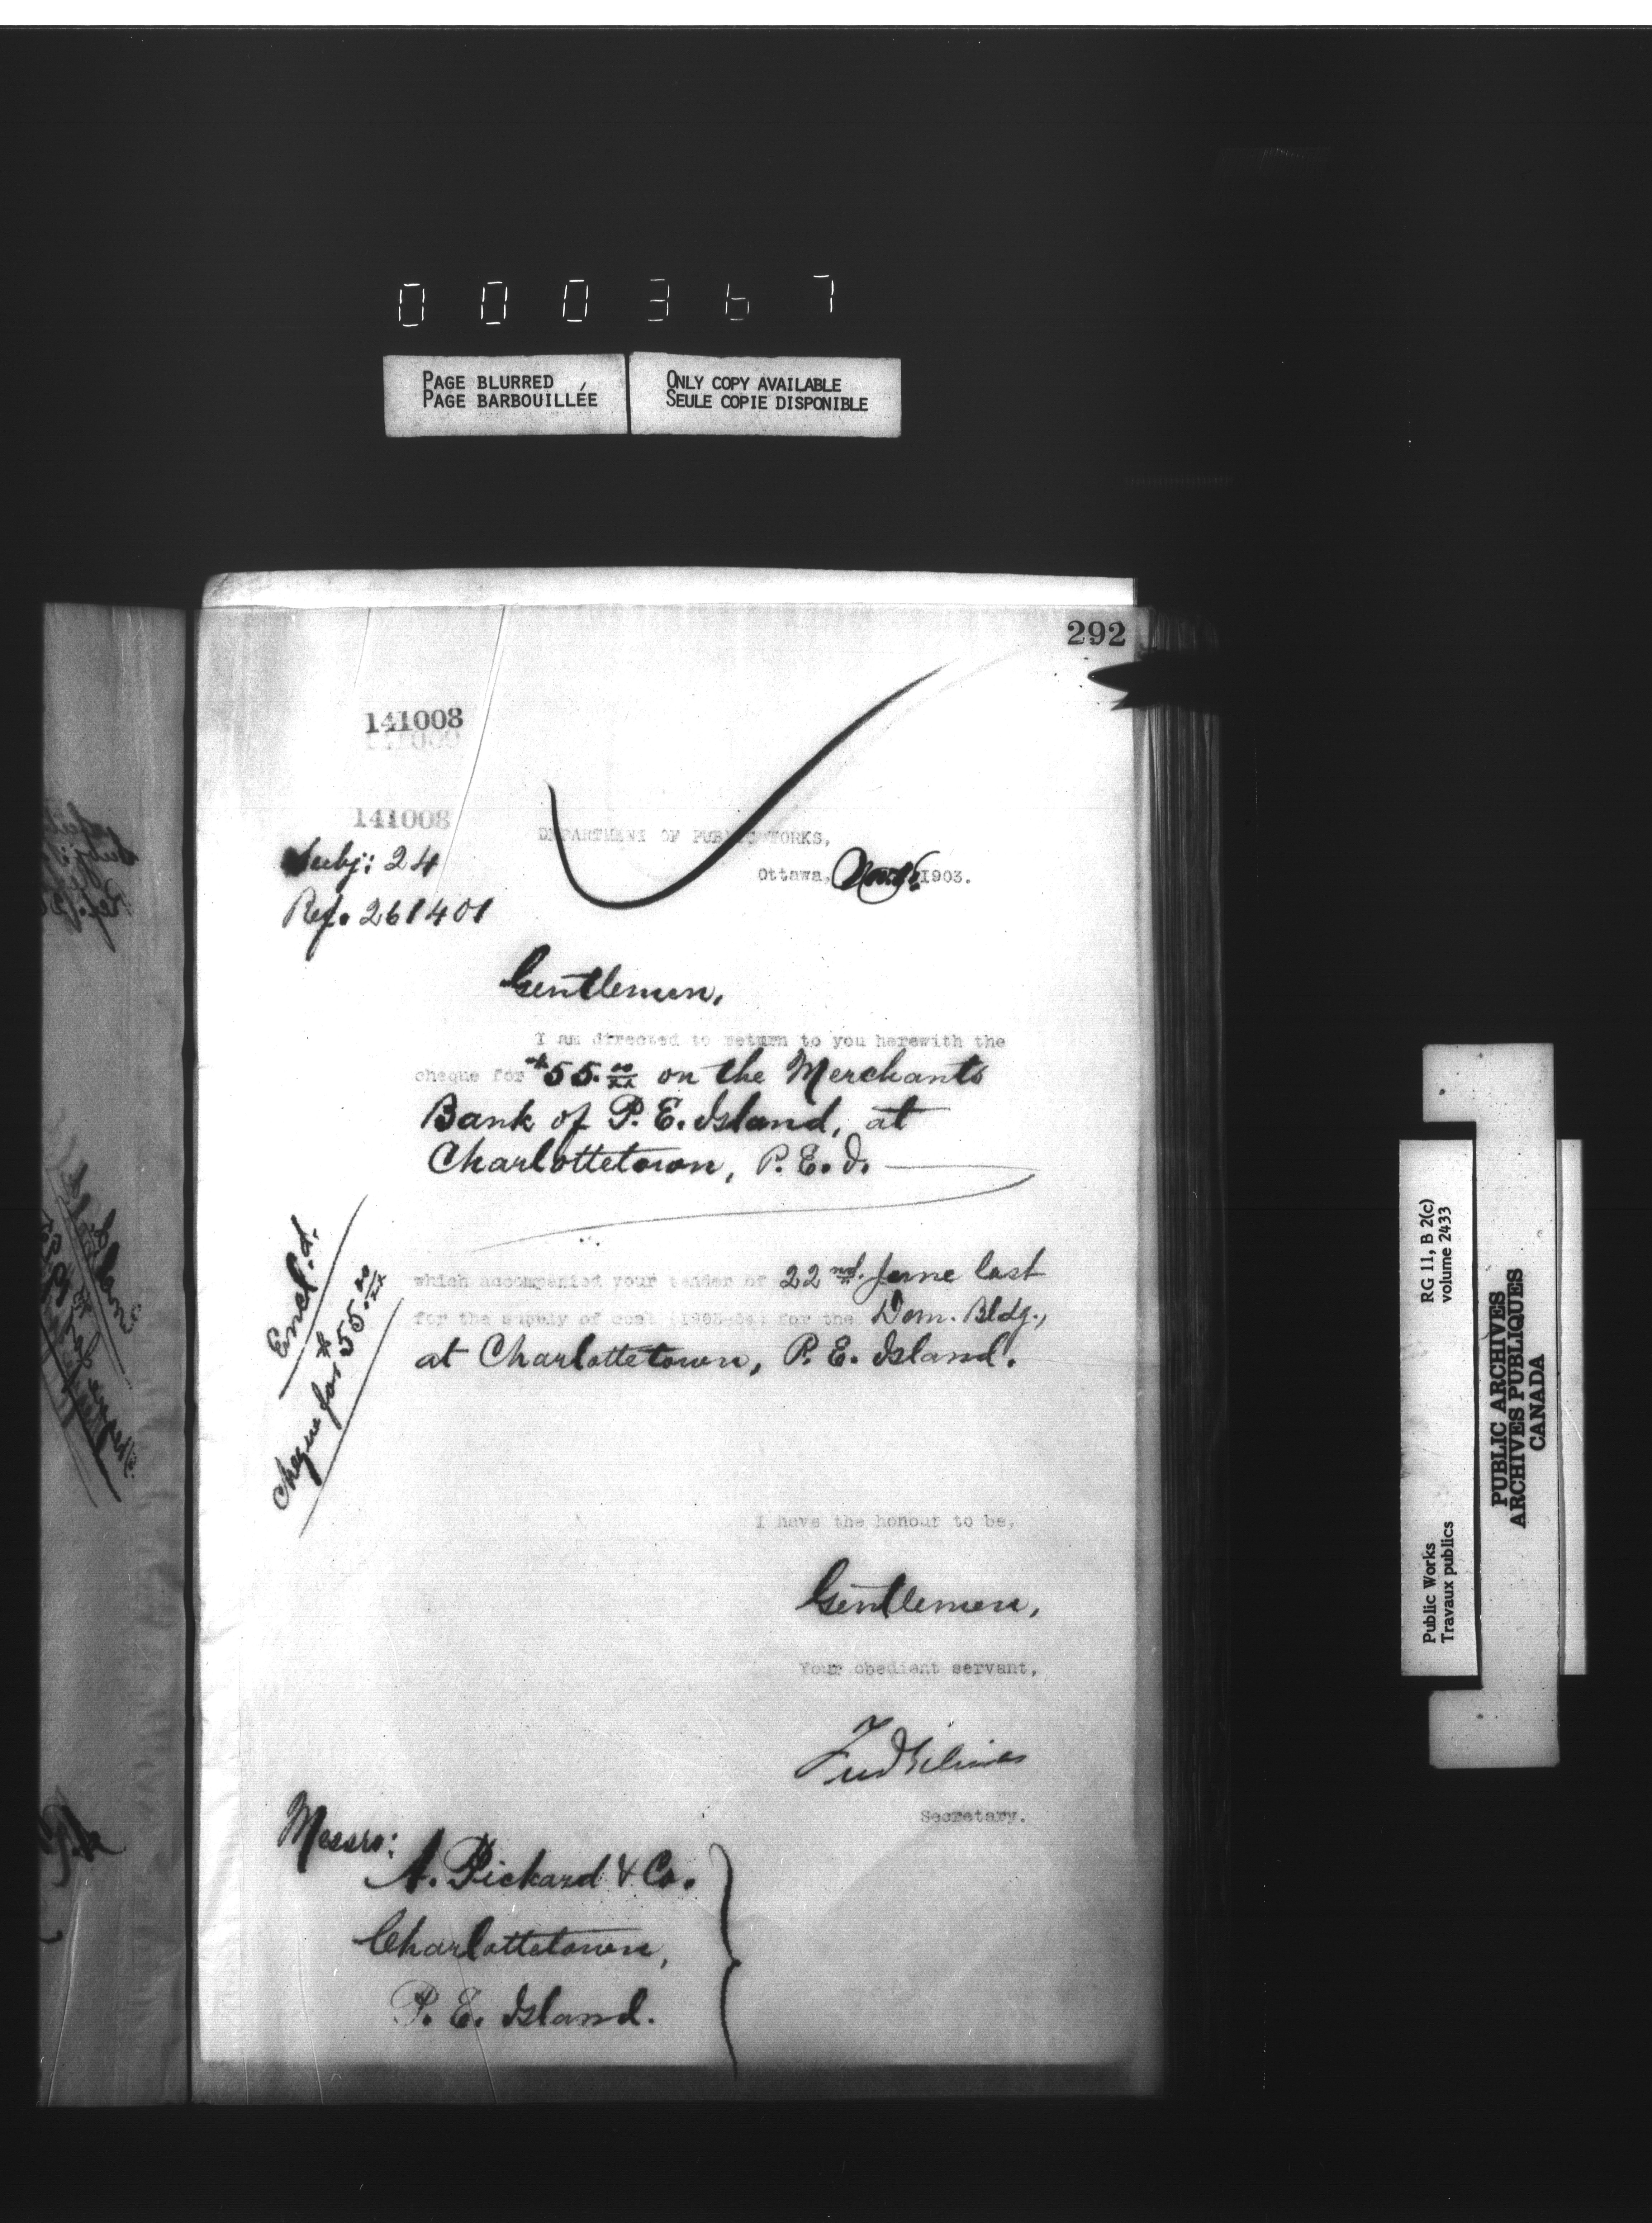 000367
PAGE BLURRED
PAGE BARBOUILLÉE
ONLY COPY AVAILABLE
SEULE COPIE DISPONIBLE
292
141008
141008
Subj: 24
Ref. 261401
DEPARTMENT OF PUBLIC WORKS,
Ottawa, 1903.
Gentlemen,
I am directed to return to you herewith the
cheque for $55.00/xx on the Merchants
Bank of P. E. Island, at
Charlottetown, P. E. I.
Encl.d.
Cheque for $55.00/xx
which accompanied your tender of 22nd. June last
for the supply of coal (1903-04) for the Dom. Bldg.,
at Charlottetown, P. E. Island.
I have the honour to be,
Gentlemen,
Your obedient servant,
Fred Gélinas
Secretary.
Messrs:
A. Pickard & Co.
Charlottetown,
P. E. Island.
RG 11, B 2(c)
volume 2433
Public Works
Travaux publics
PUBLIC ARCHIVES
ARCHIVES PUBLIQUES
CANADA